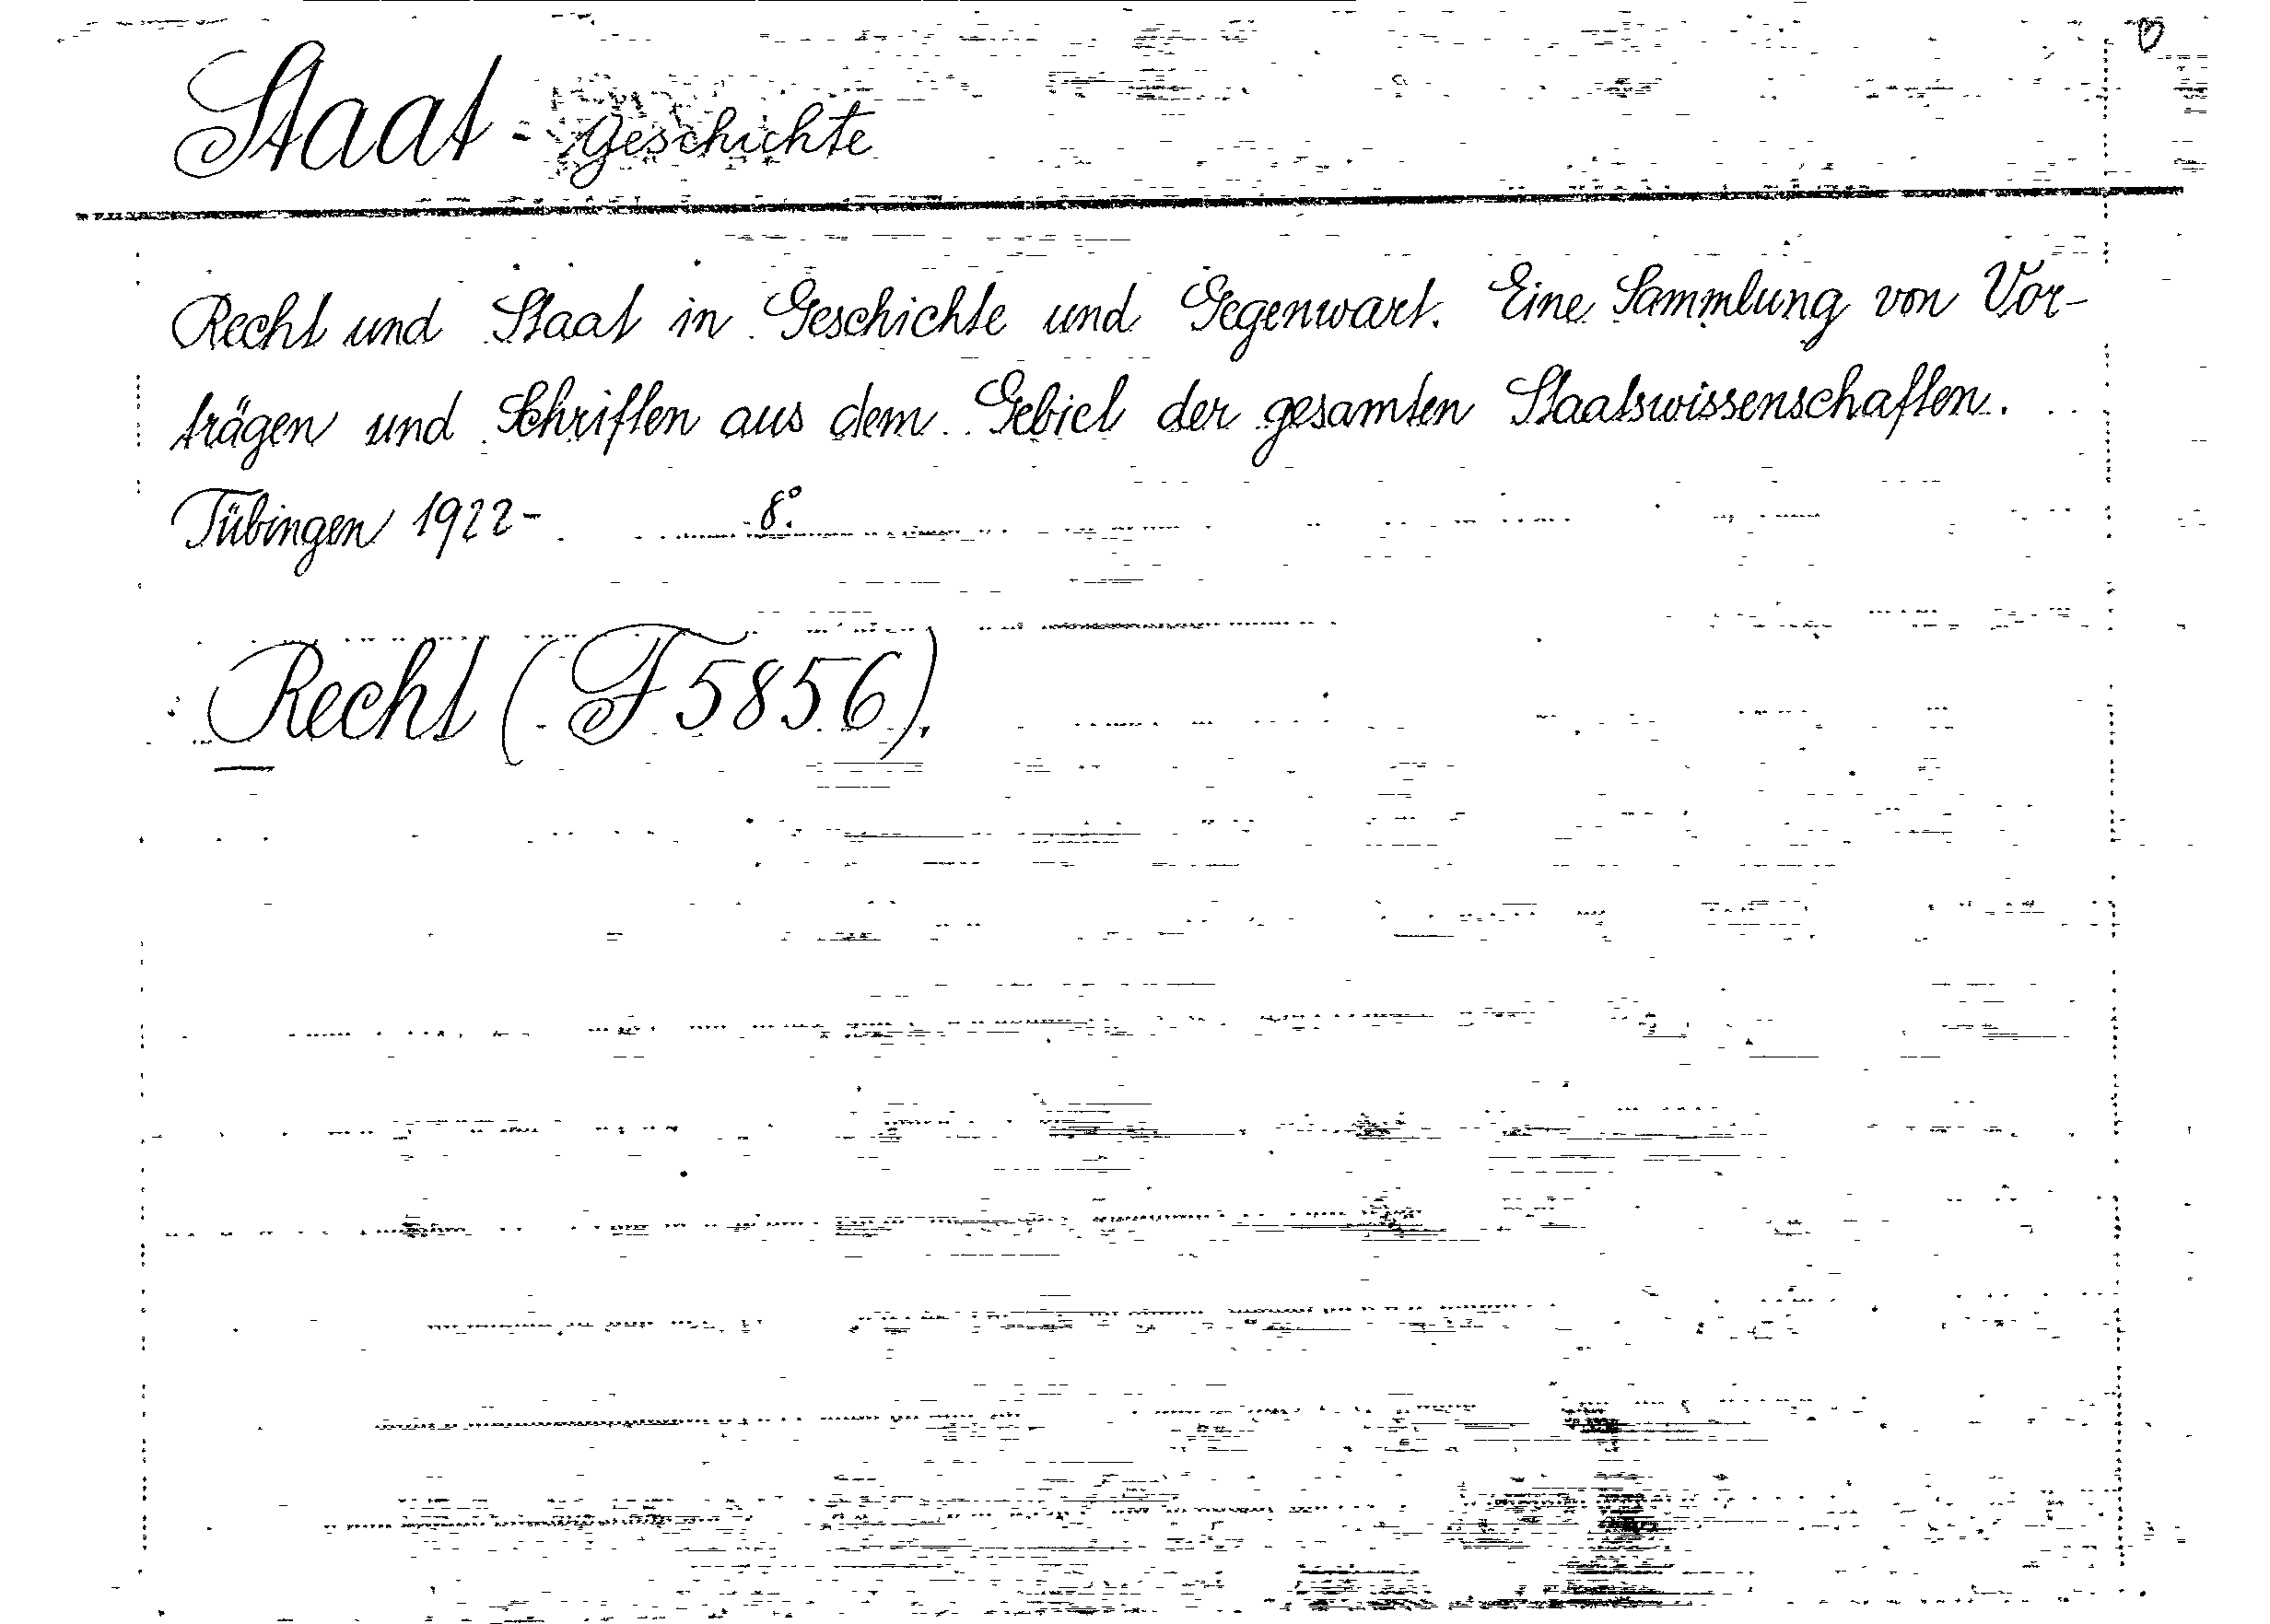 Staat - Geschichte
Recht und Staat in Geschichte und Gegenwart. Eine Sammlung von Vor-
trägen und Schriften aus dem Gebiet der gesamten Staatswissenschaften.
Tübingen 1922- 8°.
Recht (F 5856).